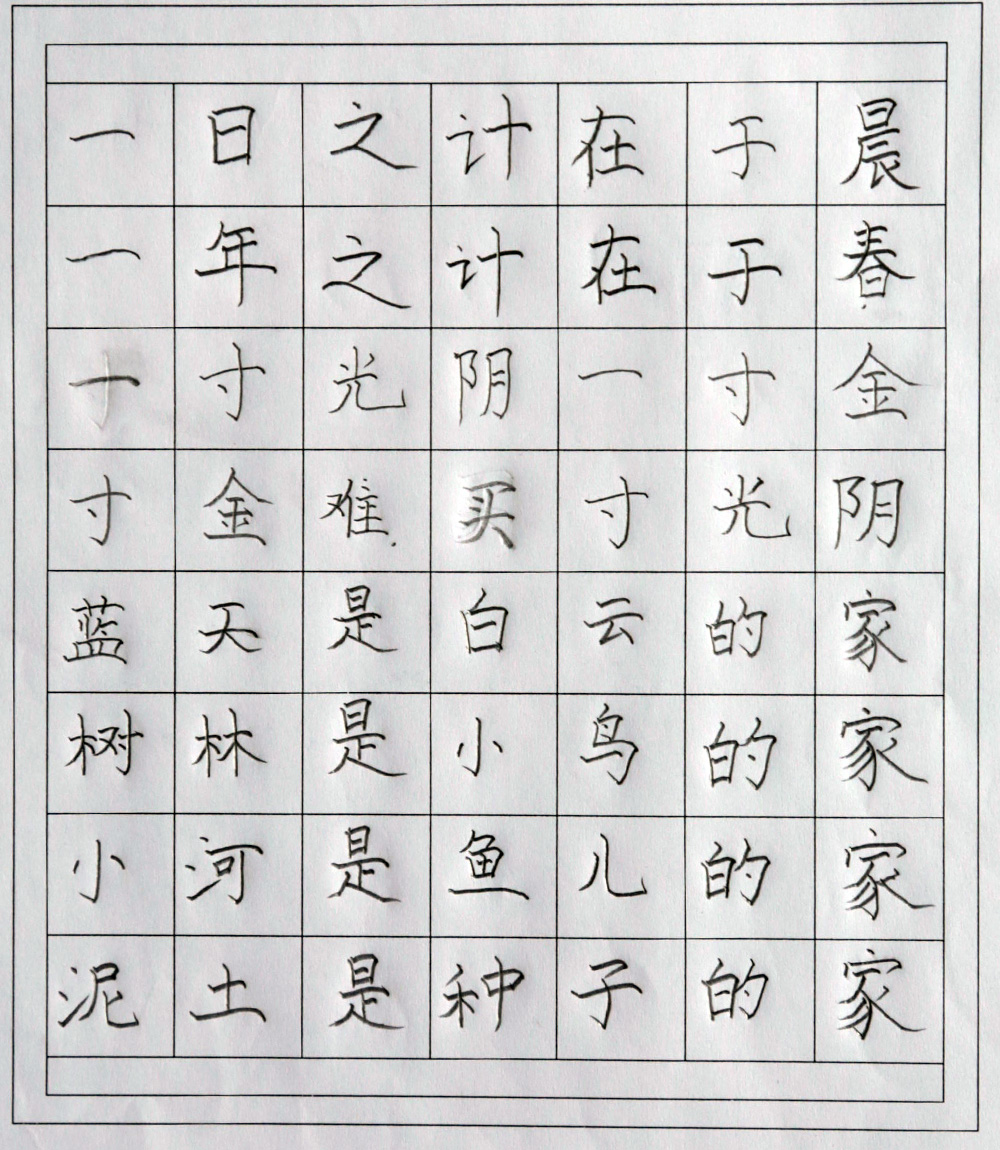 一日之计在于晨
一年之计在于春
一寸光阴一寸金
寸金难买寸光阴
蓝天是白云的家
树林是小鸟的家
小河是鱼儿的家
泥土是种子的家